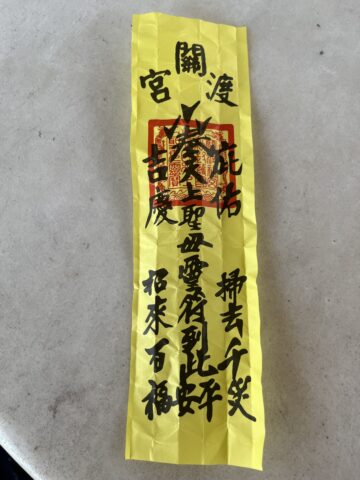 關渡宮
庇佑 掃去千災
奉天上聖母靈符到此平安
吉慶 招來百福